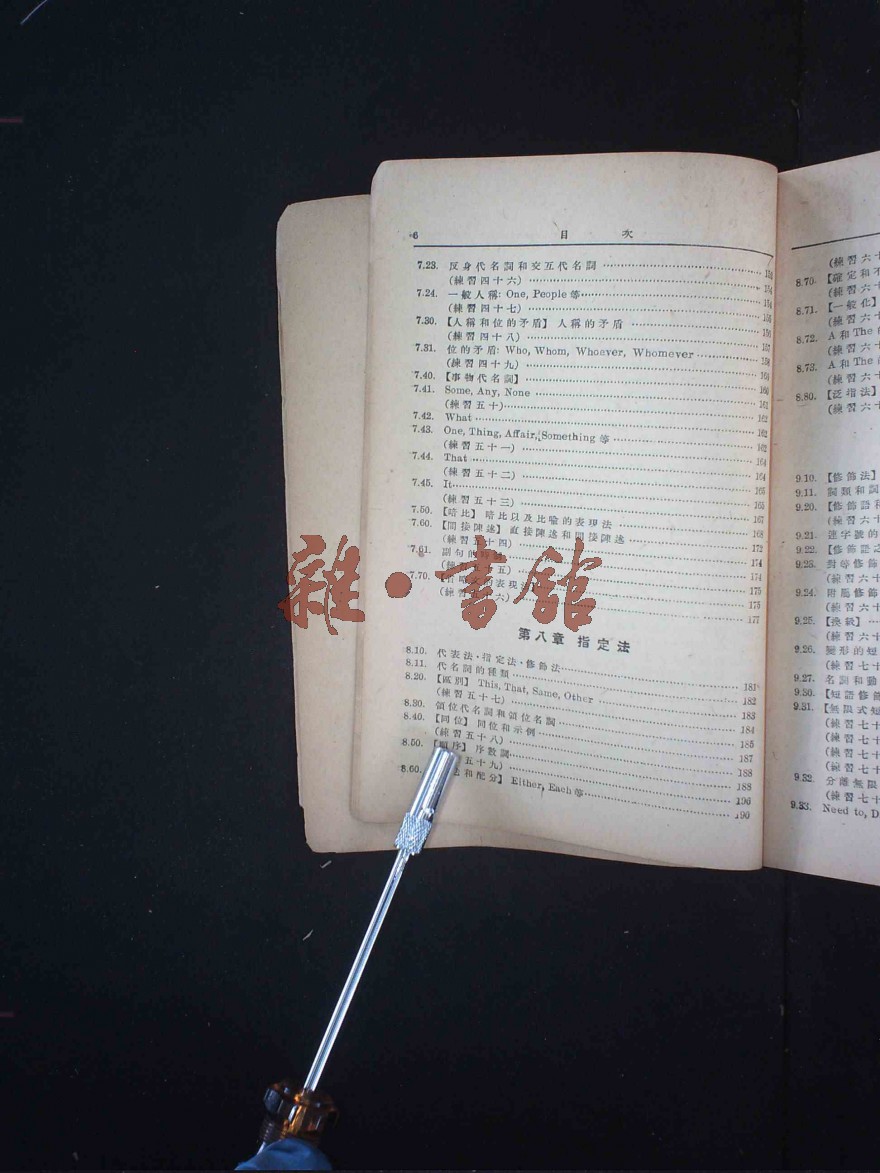 6 目 次
7.23. 反身代名詞和交互代名詞
(練習四十六) 154
7.24. 一般人稱: One, People 等 154
(練習四十七) 155
7.30. 【人稱和位的矛盾】 人稱的矛盾 156
(練習四十八) 157
7.31. 位的矛盾: Who, Whom, Whoever, Whomever 158
(練習四十九) 160
7.40. 【事物代名詞】 160
7.41. Some, Any, None 161
(練習五十) 162
7.42. What 162
7.43. One, Thing, Affair, Something 等 162
(練習五十一) 164
7.44. That 164
(練習五十二) 165
7.45. It 165
(練習五十三) 167
7.50. 【暗比】 暗比以及比喻的表現法 168
7.60. 【間接陳述】 直接陳述和間接陳述 172
(練習五十四) 174
7.61. 副句的 174
(練習五十五) 175
7.70. 的表現法 175
(練習五十六) 177
第八章 指定法
8.10. 代表法·指定法·修飾法 181
8.11. 代名詞的種類 182
8.20. 【區別】 This, That, Same, Other 183
(練習五十七) 184
8.30. 領位代名詞和領位名詞 185
8.40. 【同位】 同位和示例 187
(練習五十八) 188
8.50. 【順序】 序數詞 188
五十九) 190
8.60. 法和配分】 Either, Each 等 190
雜·書館
(練習六十
8.70. 【確定和不
(練習六十
8.71. 【一般化】
(練習六十
8.72. A 和 The
(練習六十
8.73. A 和 The
(練習六十
8.80. 【泛指法】
(練習六十
9.10. 【修飾法】
9.11. 詞類和詞
9.20. 【修飾語和
(練習六十
9.21. 連字號的
9.22. 【修飾語之
9.23. 對等修飾
(練習六十
9.24. 附屬修飾
(練習六十
9.25. 【換級】
(練習六十
9.26. 變形的短
(練習七十
9.27. 名詞和動
9.30. 【短語修飾
9.31. 【無限式短
(練習七十
(練習七十
(練習七十
9.32. 分離無限
(練習七十
9.33. Need to, D